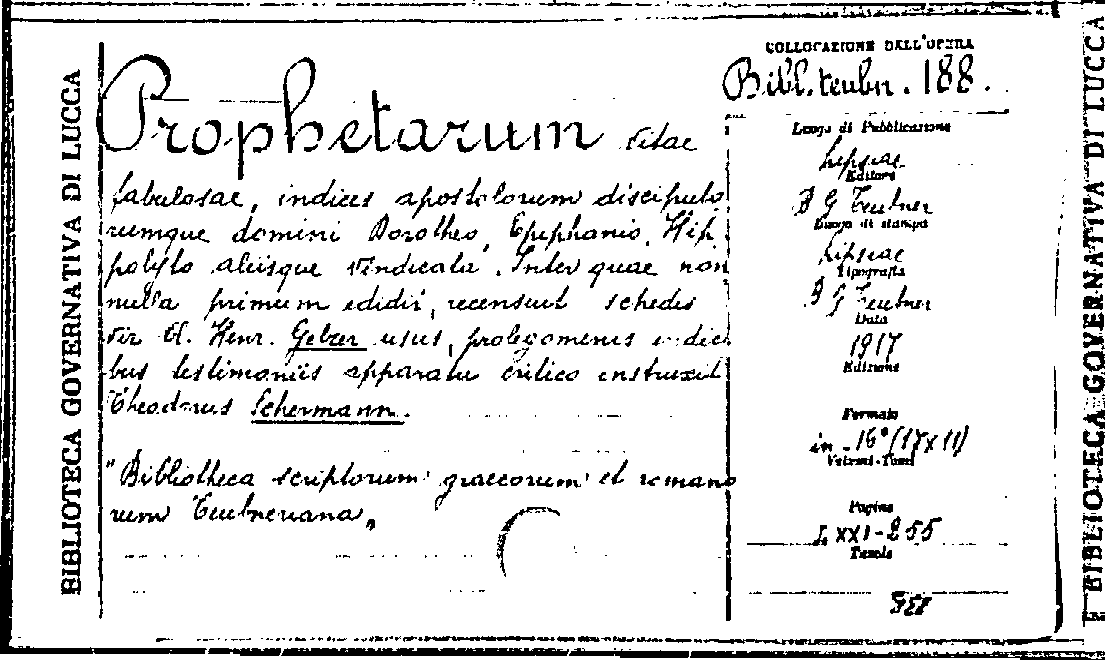 BIBLIOTECA GOVERNATIVA DI LUCCA
Prophetarum vitae
fabulosae, indices apostolorum discipulo
rumque domini Dorotheo, Epiphanio, Hip
polyto aliisque vindicata. Inter quae non
nulla primum edidit, recensuit schedis
vir Cl. Henr. Gelzer usus, prolegomenis indici
bus testimoniis apparatu critico instruxit
Theodorus Schermann.
"Bibliotheca scriptorum graecorum et romano
rum Teubneriana„
COLLOCAZIONE DALL'OPERA
Bibl. teubn. 188.
Luogo di Pubblicazione
Lipsiae
Editore
B G Teubner
Luogo di stampa
Lipsiae
Tipografia
B G Teubner
Data
1917
Edizione
Formato
in-16° (17x11)
Volumi-Tomi
Pagine
LXXI-255
Tavole
BIBLIOTECA GOVERNATIVA DI LUCCA